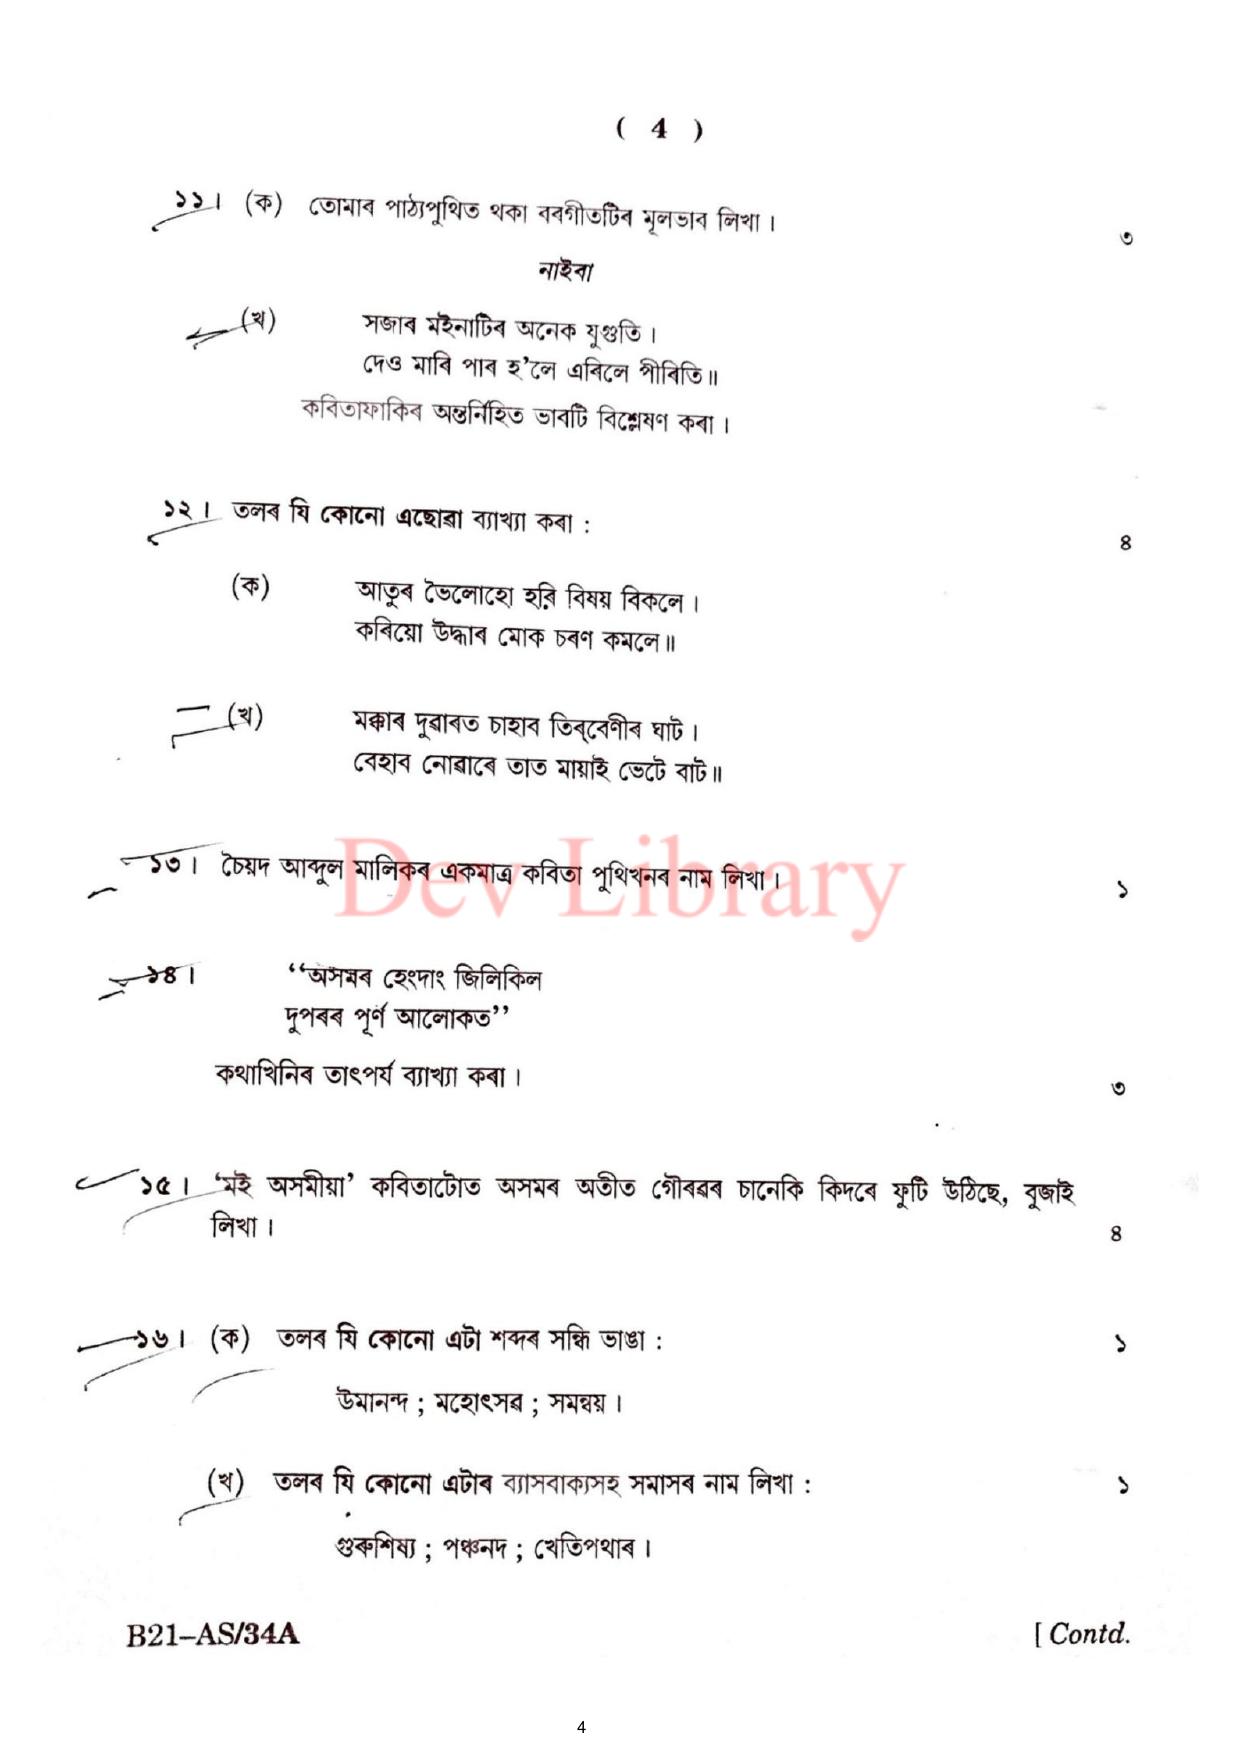 ( 4 )
১১। (ক) তোমাৰ পাঠ্যপুথিত থকা বৰগীতটিৰ মূলভাৱ লিখা। ৩
নাইবা
(খ) সজাৰ মইনাটিৰ অনেক যুগুতি।
দেও মাৰি পাৰ হ’লে এৰিলে পীৰিতি॥
কবিতাফাকিৰ অন্তৰ্নিহিত ভাবটি বিশ্লেষণ কৰা।
১২। তলৰ যি কোনো এছোৱা ব্যাখ্যা কৰা : ৪
(ক) আতুৰ ভৈলোহো হৰি বিষয় বিকলে।
কৰিয়ো উদ্ধাৰ মোক চৰণ কমলে॥
(খ) মক্কাৰ দুৱাৰত চাহাব তিৰ্‌বেণীৰ ঘাট।
বেহাব নোৱাৰে তাত মায়াই ভেটে বাট॥
Dev Library
১৩। চৈয়দ আব্দুল মালিকৰ একমাত্ৰ কবিতা পুথিখনৰ নাম লিখা। ১
১৪। ‘‘অসমৰ হেংদাং জিলিকিল
দুপৰৰ পূৰ্ণ আলোকত’’
কথাখিনিৰ তাৎপৰ্য ব্যাখ্যা কৰা। ৩
১৫। ‘মই অসমীয়া’ কবিতাটোত অসমৰ অতীত গৌৰৱৰ চানেকি কিদৰে ফুটি উঠিছে, বুজাই
লিখা। ৪
১৬। (ক) তলৰ যি কোনো এটা শব্দৰ সন্ধি ভাঙা : ১
উমানন্দ ; মহোৎসৱ ; সমন্বয়।
(খ) তলৰ যি কোনো এটাৰ ব্যাসবাক্যসহ সমাসৰ নাম লিখা : ১
গুৰুশিষ্য ; পঞ্চনদ ; খেতিপথাৰ।
B21–AS/34A [ Contd.
4